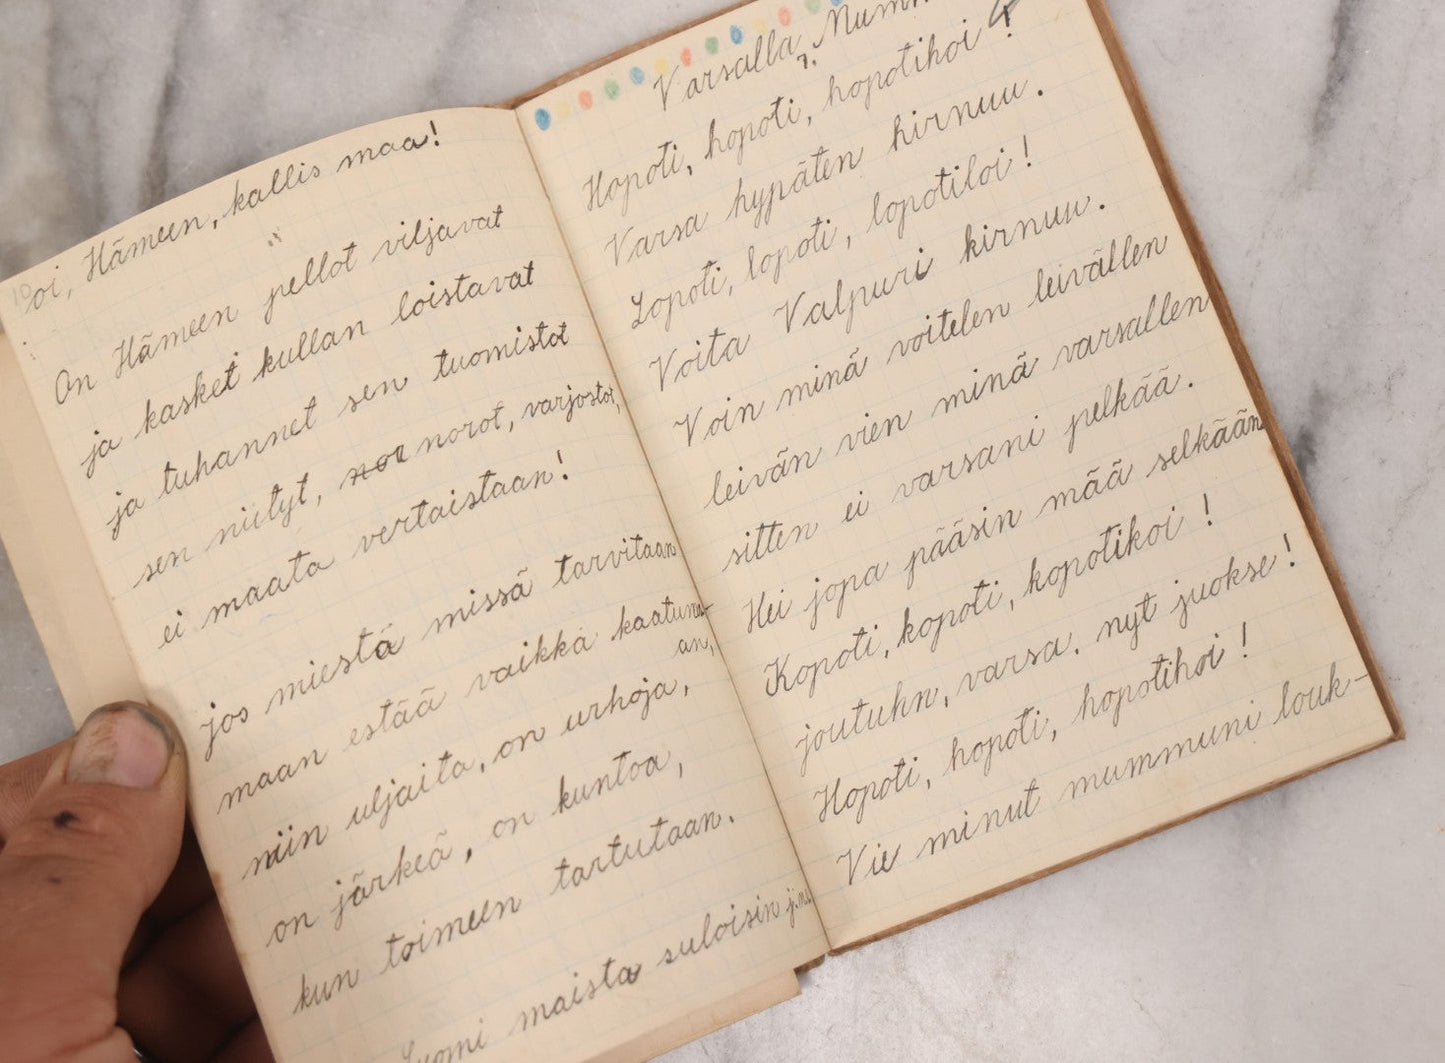 oi, Hämeen, kallis maa!
"
On Hämeen pellot viljavat
ja kasket kullan loistavat
ja tuhannet sen tuomistot
sen niityt, nor norot, varjostot,
ei maata vertaistaan!
jos miestä missä tarvitaan
maan estää vaikka kaatuma-
an,
niin uljaita, on urhoja,
on järkeä, on kuntoa,
kun toimeen tartutaan.
Suomi maista suloisin j.n.
Varsalla
Hopoti, hopoti, hopotihoi!
Varsa hypäten hirnuu.
Lopoti, lopoti, lopotiloi!
Voita Valpuri kirnuu.
Voin minä voitelen leivällen
leivän vien minä varsallen
sitten ei varsani pelkää.
Hei jopa pääsin mää selkään
Kopoti, kopoti, kopotikoi!
joutuhn, varsa. nyt juokse!
Hopoti, hopoti, hopotihoi!
Vie minut mummuni louk-